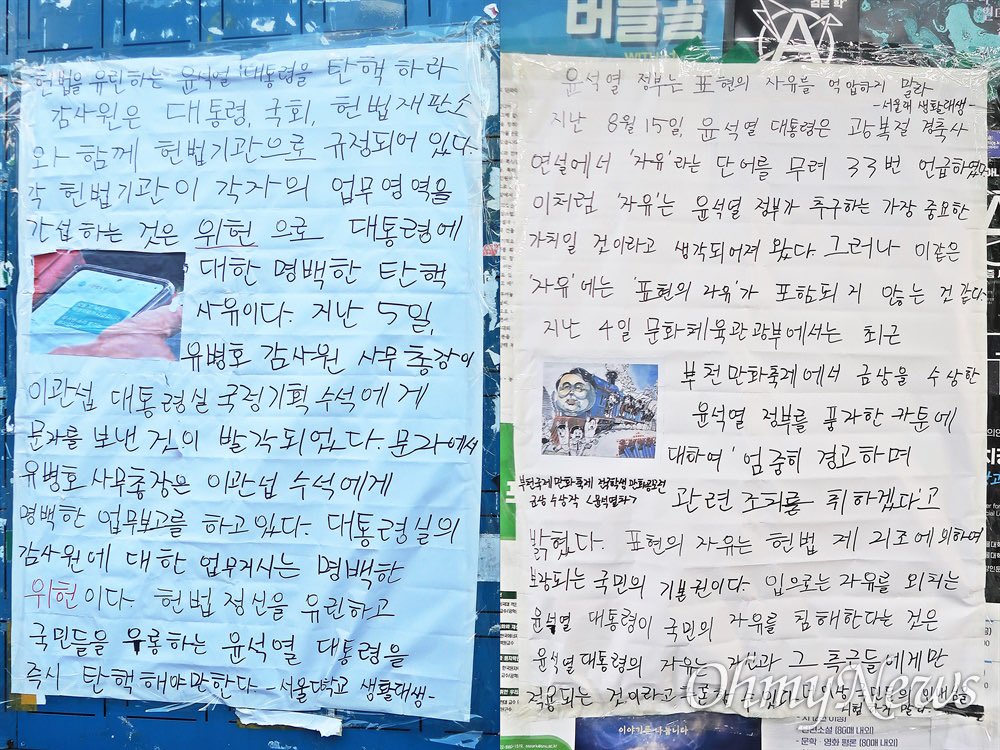 헌법을 유린하는 윤석열 대통령을 탄핵 하라
감사원은 대통령, 국회, 헌법재판소
와 함께 헌법기관으로 규정되어 있다.
각 헌법기관이 각자의 업무영역을
간섭하는 것은 위헌 으로 대통령에
대한 명백한 탄핵
사유이다. 지난 5일,
유병호 감사원 사무총장이
이관섭 대통령실 국정기획수석에게
문자를 보낸 것이 발각되었다. 문자에서
유병호 사무총장은 이관섭 수석에게
명백한 업무보고를 하고있다. 대통령실의
감사원에 대한 업무지시는 명백한
위헌이다. 헌법 정신을 유린하고
국민들을 우롱하는 윤석열 대통령을
즉시 탄핵해야만한다. -서울대학교 생활대생-
버들골
윤석열 정부는 표현의 자유를 억압하지 말라
-서울대 생활대생-
지난 8월 15일, 윤석열 대통령은 광복절 경축사
연설에서 '자유'라는 단어를 무려 33번 언급하였다.
이처럼 '자유'는 윤석열 정부가 추구하는 가장 중요한
가치일 것이라고 생각되어져 왔다. 그러나 이같은
'자유'에는 '표현의 자유'가 포함되지 않는 것 같다.
지난 4일 문화체육관광부에서는 최근
부천만화축제에서 금상을 수상한
윤석열 정부를 풍자한 카툰에
대하여 '엄중히 경고하며
부천국제만화축제 전국학생만화공모전
금상 수상작 <윤석열차>
관련 조치를 취하겠다'고
밝혔다. 표현의 자유는 헌법 제 21조에 의하여
보장되는 국민의 기본권이다. 입으로는 자유를 외치는
윤석열 대통령이 국민의 자유를 침해한다는 것은
윤석열대통령의 자유는 자신과 그 측근들에게만
적용되는 것이라고
OhmyNews
이야기는 나뉩니다
· 문학·영화 평론 (80매 내외)